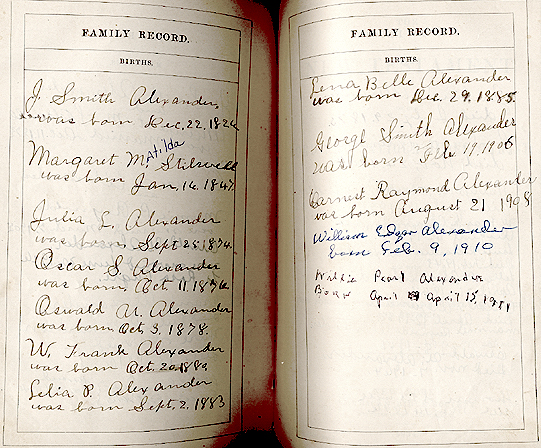 FAMILY RECORD.
BIRTHS.
J. Smith Alexander,
was born Dec. 22, 182
Margaret M Atilda Stilwell
was born Jan. 14. 184
Julia L. Alexander
was born Sept 25 1874.
Oscar S. Alexander
was born, Oct 11 1876
Oswald U. Alexander
was born Oct. 3. 1878.
W. Frank Alexander
was born Oct. 20
Lelia P. Alexander
was born Sept. 2. 1883
FAMILY RECORD.
BIRTHS.
Lena Belle Alexander
was born Dec. 29. 1885.
George Smith Alexander
was born Feb. 19, 1906
Earnest Raymond Alexander
was born August 21 1908
William Edgar Alexander
born Feb. 9, 1910
Pearl Alexander
Born April April 15, 19